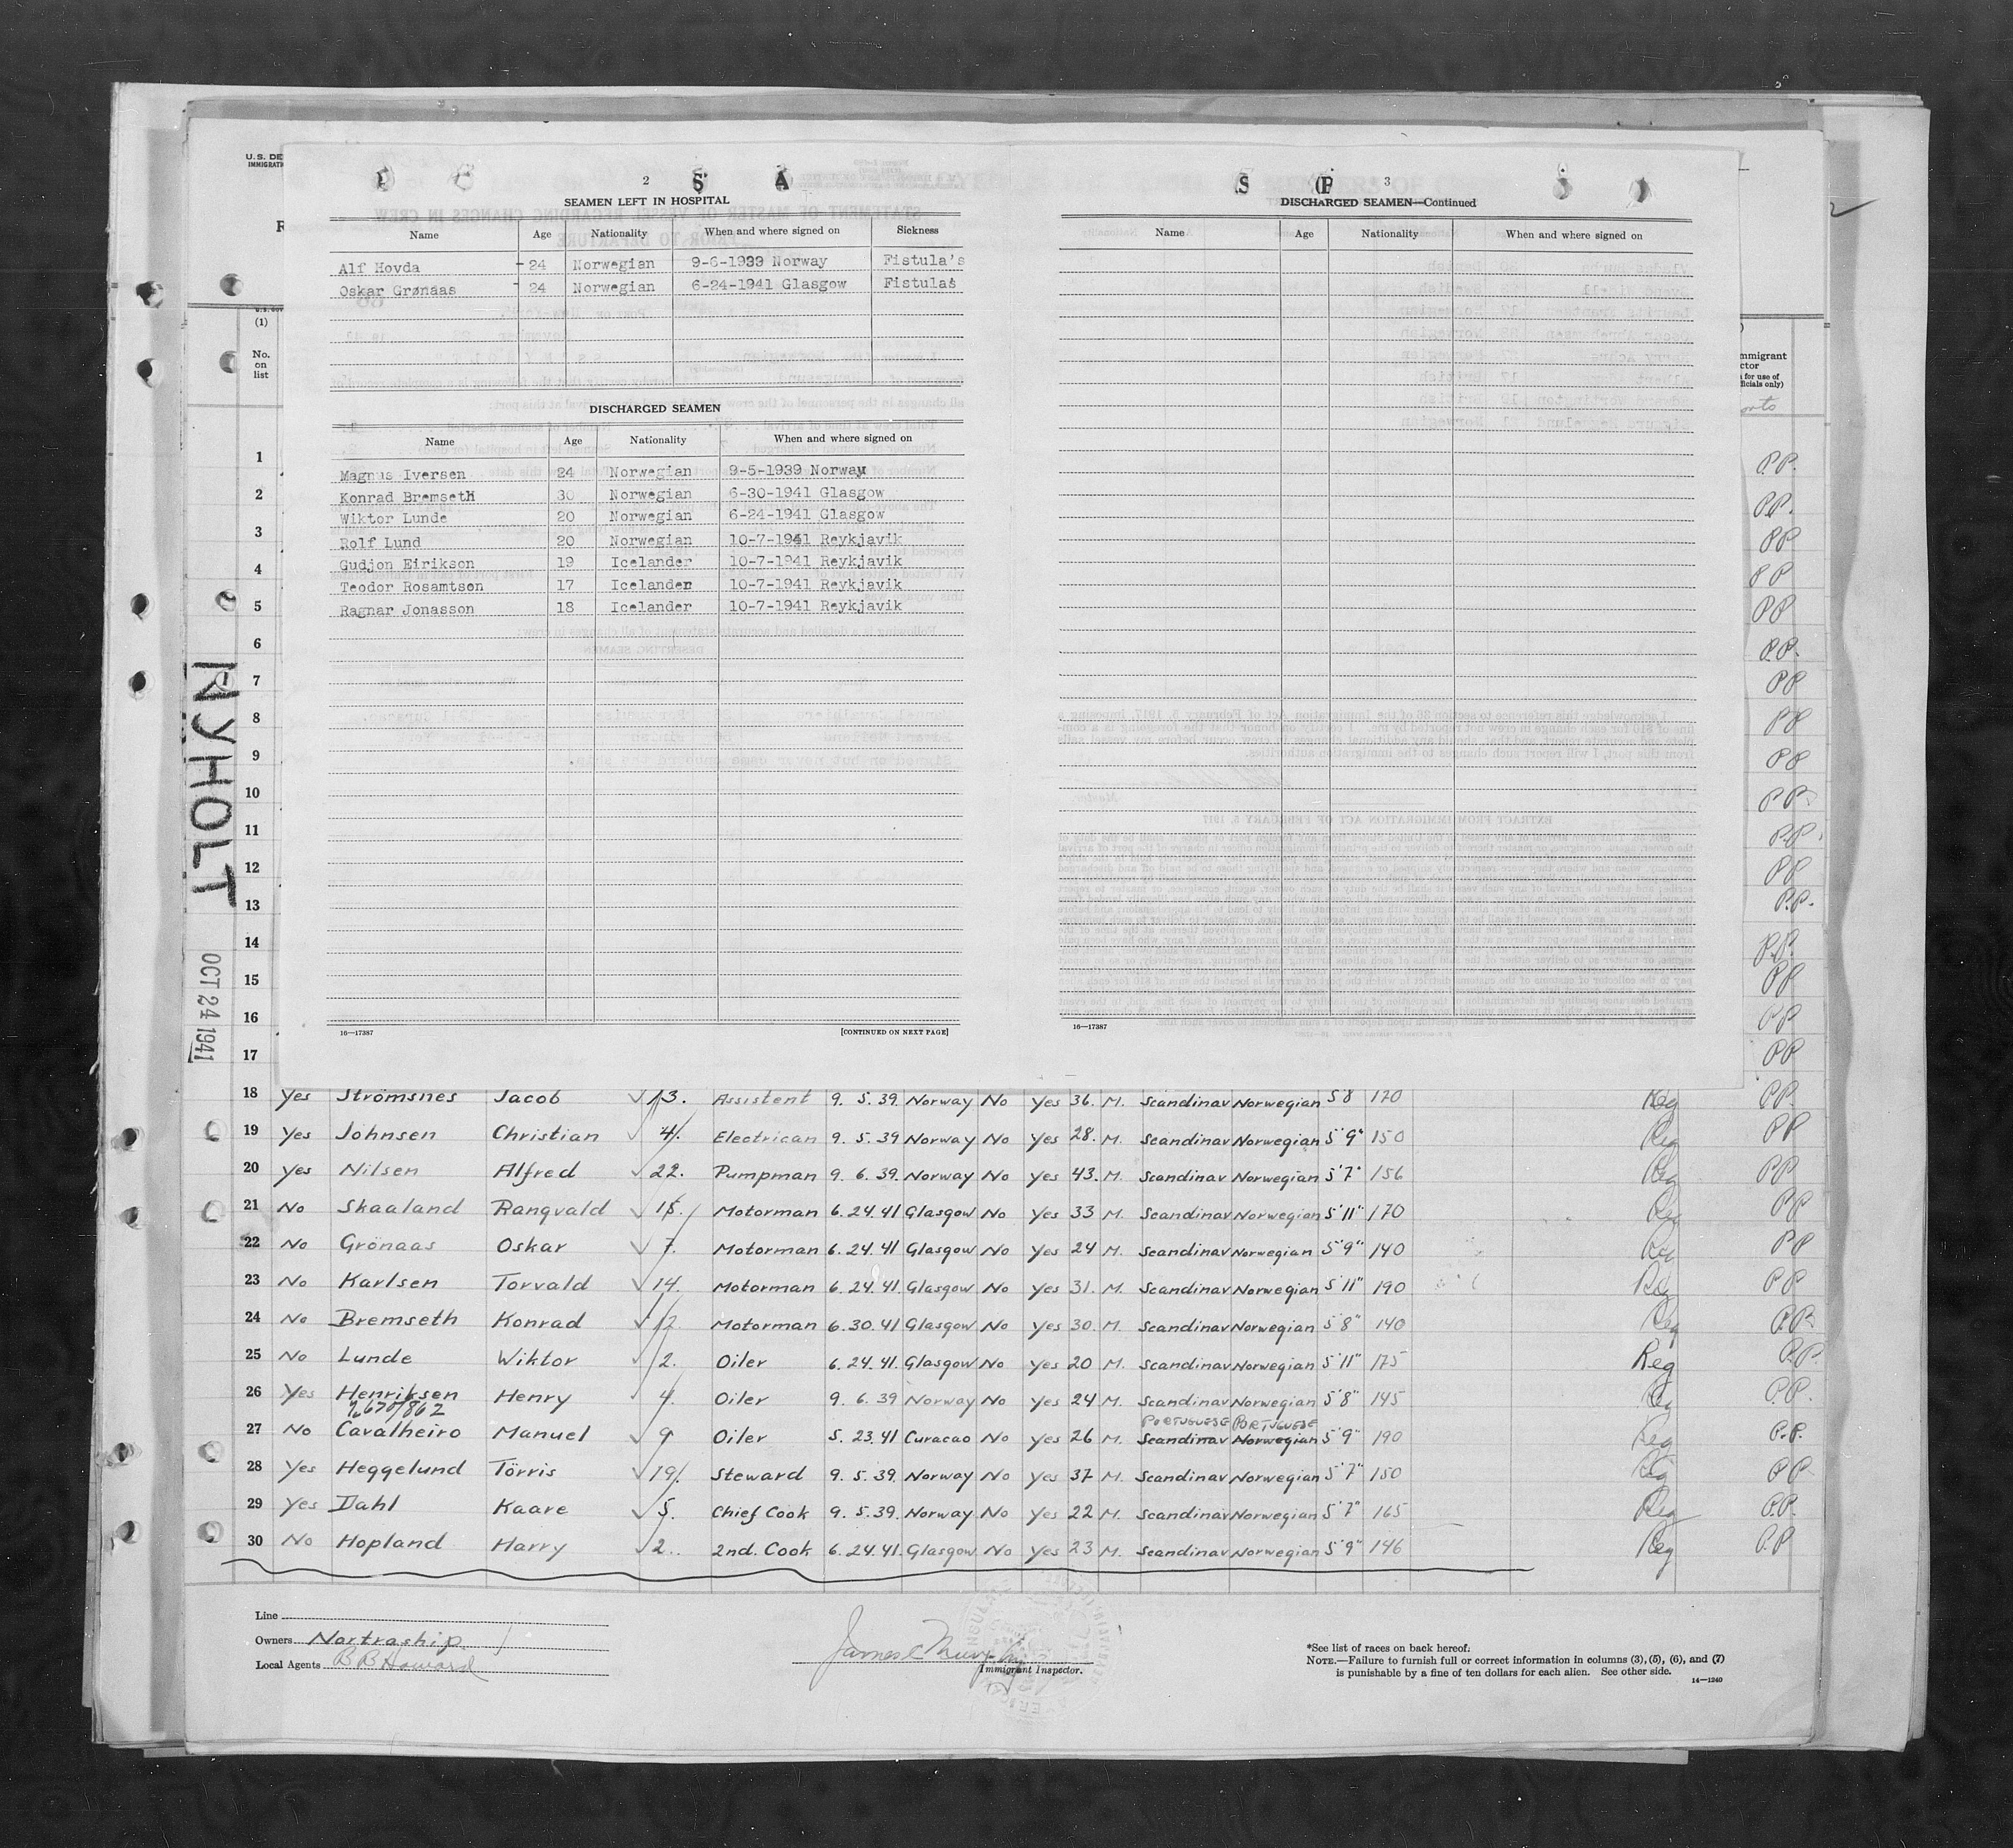 U.S. DE
IMMIGRATI
2
SEAMEN LEFT IN HOSPITAL
Name Age Nationality When and where signed on Sickness
Alf Hovda 24 Norwegian 9-6-1939 Norway Fistula's
Oskar Grønaas 24 Norwegian 6-24-1941 Glasgow Fistulas
DISCHARGED SEAMEN
Name Age Nationality When and where signed on
Magnus Iversen 24 Norwegian 9-5-1939 Norway
Konrad Bremseth 30 Norwegian 6-30-1941 Glasgow
Wiktor Lunde 20 Norwegian 6-24-1941 Glasgow
Rolf Lund 20 Norwegian 10-7-1941 Reykjavik
Gudjon Eirikson 19 Icelander 10-7-1941 Reykjavik
Teodor Rosamtson 17 Icelander 10-7-1941 Reykjavik
Ragnar Jonasson 18 Icelander 10-7-1941 Reykjavik
16—17387 [CONTINUED ON NEXT PAGE]
3
DISCHARGED SEAMEN—Continued
Name Age Nationality When and where signed on
16—17387
(1)
No.
on
list
mmigrant
ctor
for use of
ficials only)
NYHOLT
OCT 24 1941
1 P.P.
2 P.P.
3 PP
4 PP
5 PP
6 P.P.
7 PP
8 PP
9 PP
10 PP
11 P.P.
12 PP
13 P.P.
14 P.P.
15 PP
16 PP
17 PP
18 Yes Strömsnes Jacob 13. Assistent 9. 5. 39. Norway No Yes 36. M. Scandinav Norwegian 5'8 170 Reg PP.
19 Yes Johnsen Christian 4. Electrican 9. 5. 39 Norway No Yes 28. M. Scandinav Norwegian 5'9" 150 Reg PP
20 Yes Nilsen Alfred 22. Pumpman 9. 6. 39. Norway No Yes 43. M. Scandinav Norwegian 5'7" 156 Reg PP
21 No Skaaland Rangvald 15. Motorman 6. 24. 41 Glasgow No Yes 33 M. Scandinav Norwegian 5'11" 170 Reg PP
22 No Grönaas Oskar 7. Motorman 6. 24. 41 Glasgow No Yes 24 M. Scandinav Norwegian 5'9" 140 Reg PP
23 No Karlsen Torvald 14. Motorman 6. 24. 41. Glasgow No Yes 31. M. Scandinav Norwegian 5'11" 190 Reg PP
24 No Bremseth Konrad 12 Motorman 6. 30. 41 Glasgow No Yes 30. M. Scandinav Norwegian 5'8" 140 Reg P.P.
25 No Lunde Wiktor 2. Oiler 6. 24. 41. Glasgow No Yes 20 M. Scandinav Norwegian 5'11" 175 Reg P.P.
26 Yes Henriksen Henry 4. Oiler 9. 6. 39 Norway No Yes 24 M. Scandinav Norwegian 5'8" 145 Reg P.P.
PORTUGUESE PORTUGUESE
27 No Cavalheiro Manuel 9 Oiler 5. 23. 41 Curacao No Yes 26 M. Scandinav Norwegian 5'9" 190 Reg P.P.
28 Yes Heggelund Törris 19. Steward 9. 5. 39. Norway No Yes 37 M. Scandinav Norwegian 5'7" 150 Reg PP
29 Yes Dahl Kaare 5. Chief Cook 9. 5. 39. Norway No Yes 22 M. Scandinav Norwegian 5'7" 165 Reg P.P.
30 No Hopland Harry 2. 2nd. Cook 6. 24. 41. Glasgow No Yes 23 M. Scandinav Norwegian 5'9" 146 Reg P.P
Line
Owners Nortraship
Local Agents B B Howard
James C Murphy
Immigrant Inspector.
*See list of races on back hereof.
NOTE.—Failure to furnish full or correct information in columns (3), (5), (6), and (7)
is punishable by a fine of ten dollars for each alien. See other side.
14—1240